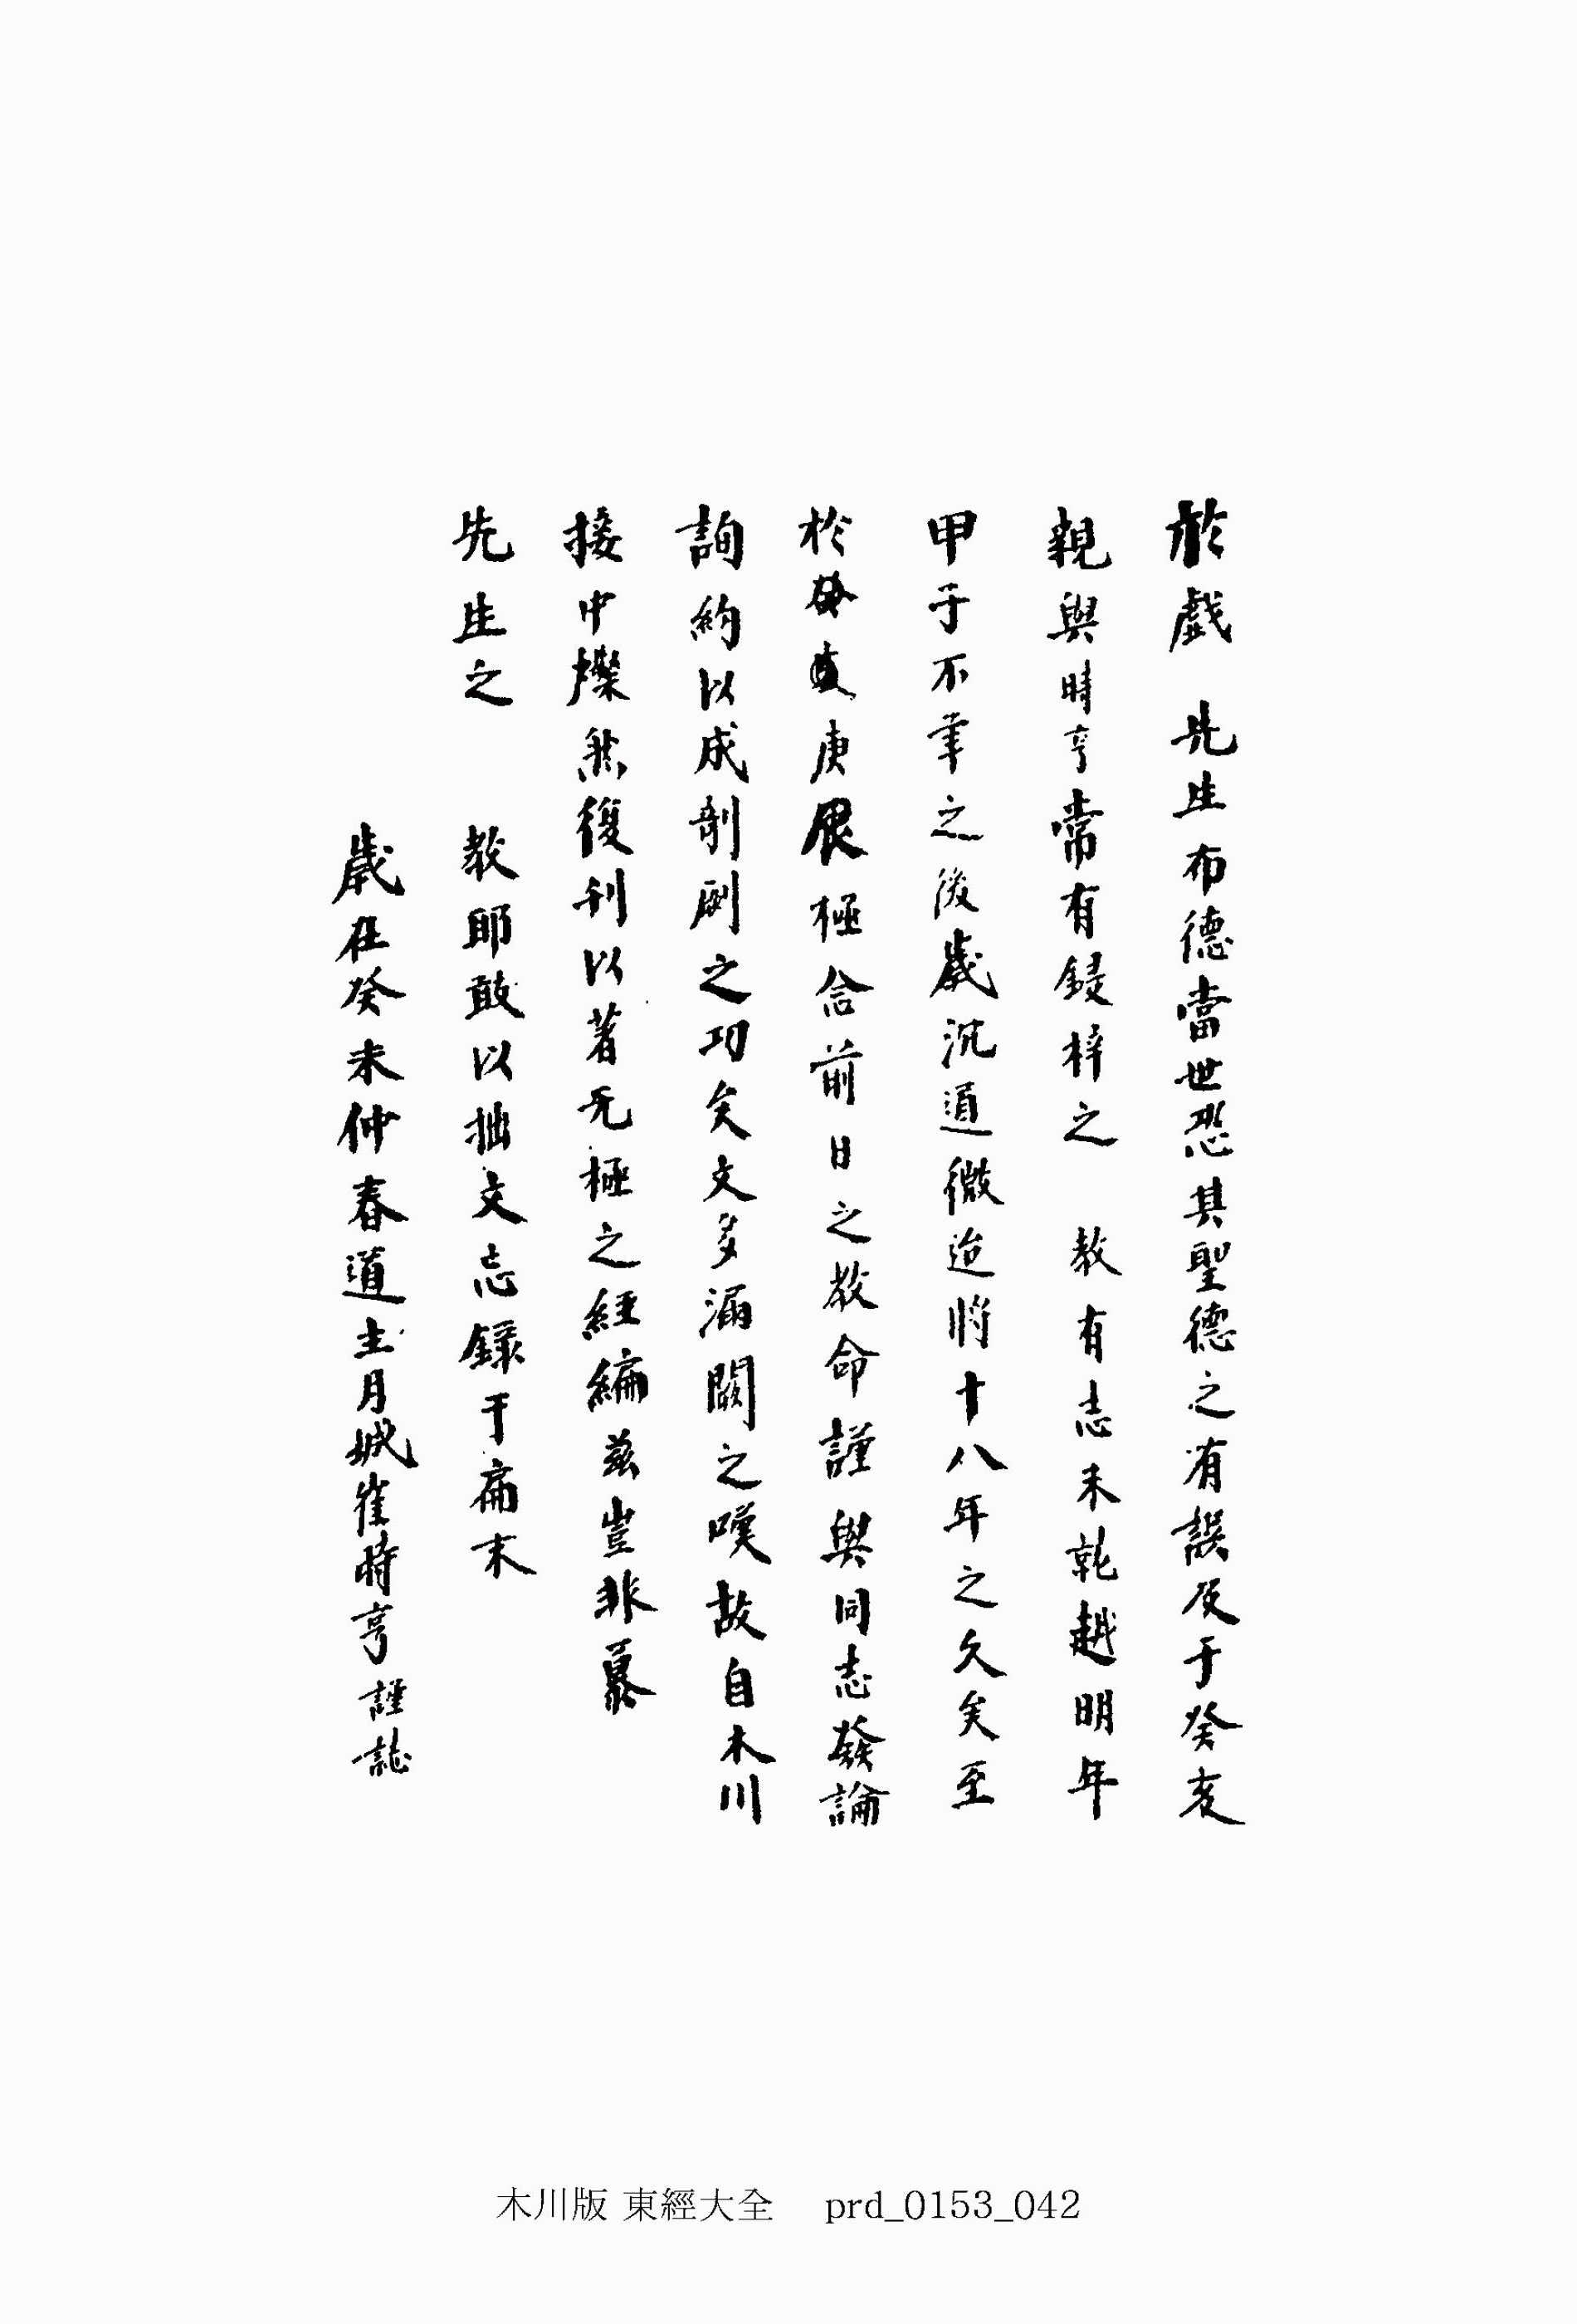 於戲 先生布德當世恐其聖德之有誤及于癸亥
親與時亨常有鋟梓之 教有志未就越明年
甲子不幸之後歲沉道微迨將十八年之久矣至
於庚辰極念前日之教命謹與同志發論
詢約以成剞劂之功矣文多漏闕之嘆故自木川
接中燦然復刊以著无極之經編玆豈非慕
先生之 教耶敢以拙文忘錄于扁末
歲在癸未仲春道主月城崔時亨謹誌
木川版 東經大全 prd_0153_042